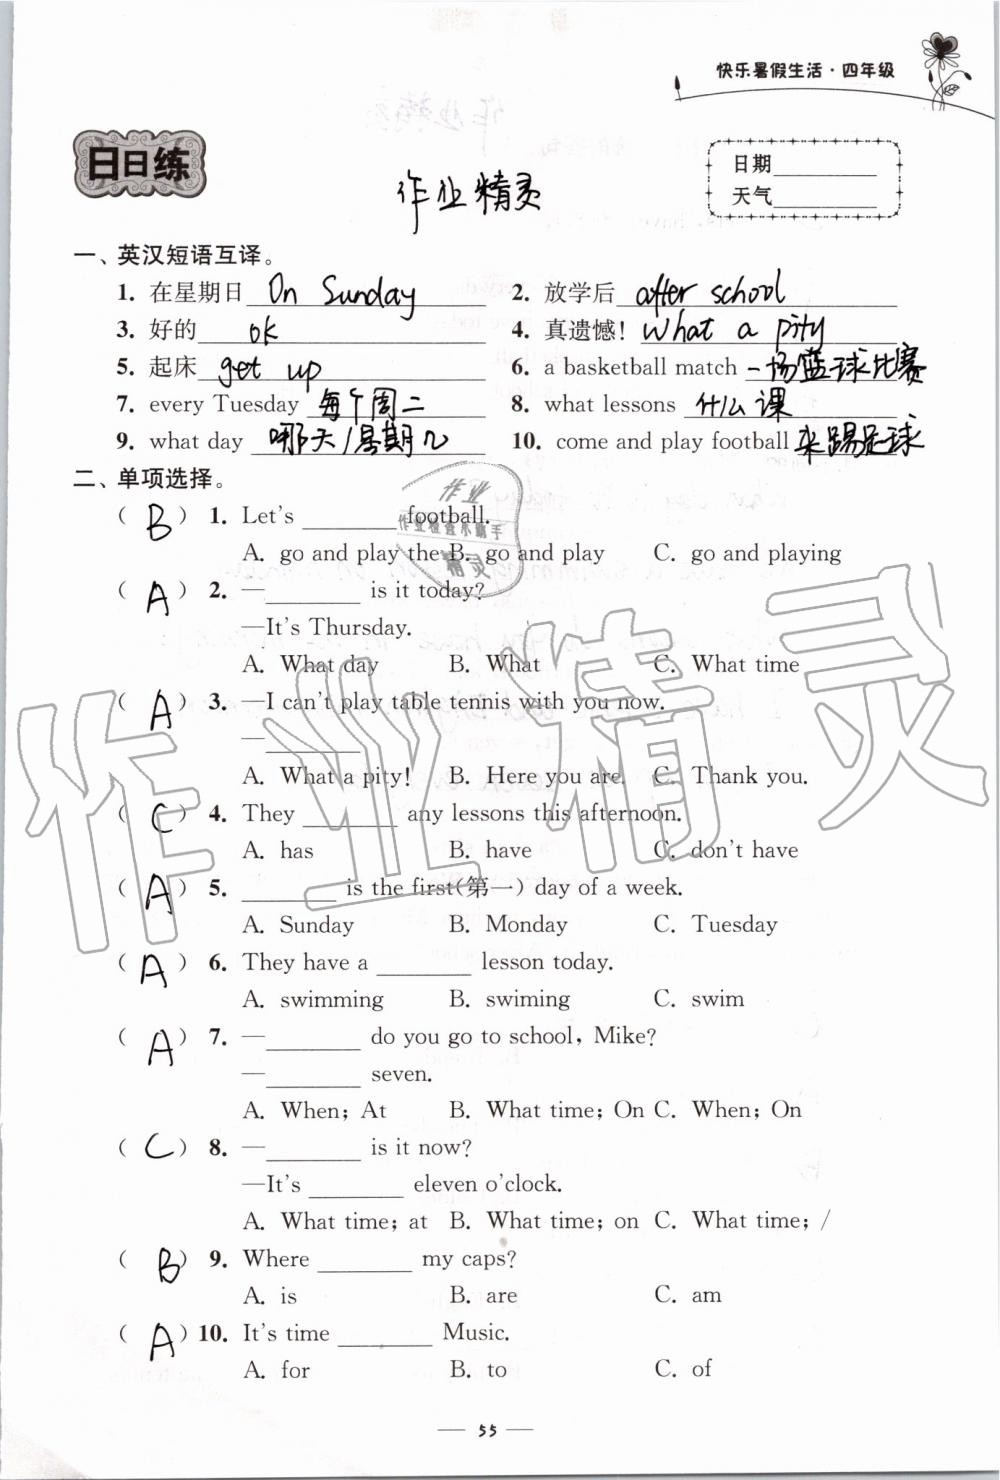 快乐暑假生活·四年级
日日练
日期
天气
作业精灵
一、英汉短语互译。
1. 在星期日 On Sunday 2. 放学后 after school
3. 好的 ok 4. 真遗憾! What a pity
5. 起床 get up 6. a basketball match 一场篮球比赛
7. every Tuesday 每个周二 8. what lessons 什么课
9. what day 哪天/星期几 10. come and play football 来踢足球
二、单项选择。
( B ) 1. Let's ________ football.
A. go and play the B. go and play C. go and playing
( A ) 2. —________ is it today?
—It's Thursday.
A. What day B. What C. What time
( A ) 3. —I can't play table tennis with you now.
—________
A. What a pity! B. Here you are. C. Thank you.
( C ) 4. They ________ any lessons this afternoon.
A. has B. have C. don't have
( A ) 5. ________ is the first(第一) day of a week.
A. Sunday B. Monday C. Tuesday
( A ) 6. They have a ________ lesson today.
A. swimming B. swiming C. swim
( A ) 7. —________ do you go to school, Mike?
—________ seven.
A. When; At B. What time; On C. When; On
( C ) 8. —________ is it now?
—It's ________ eleven o'clock.
A. What time; at B. What time; on C. What time; /
( B ) 9. Where ________ my caps?
A. is B. are C. am
( A ) 10. It's time ________ Music.
A. for B. to C. of
— 55 —
作业
作业检查小助手
精灵
作业精灵